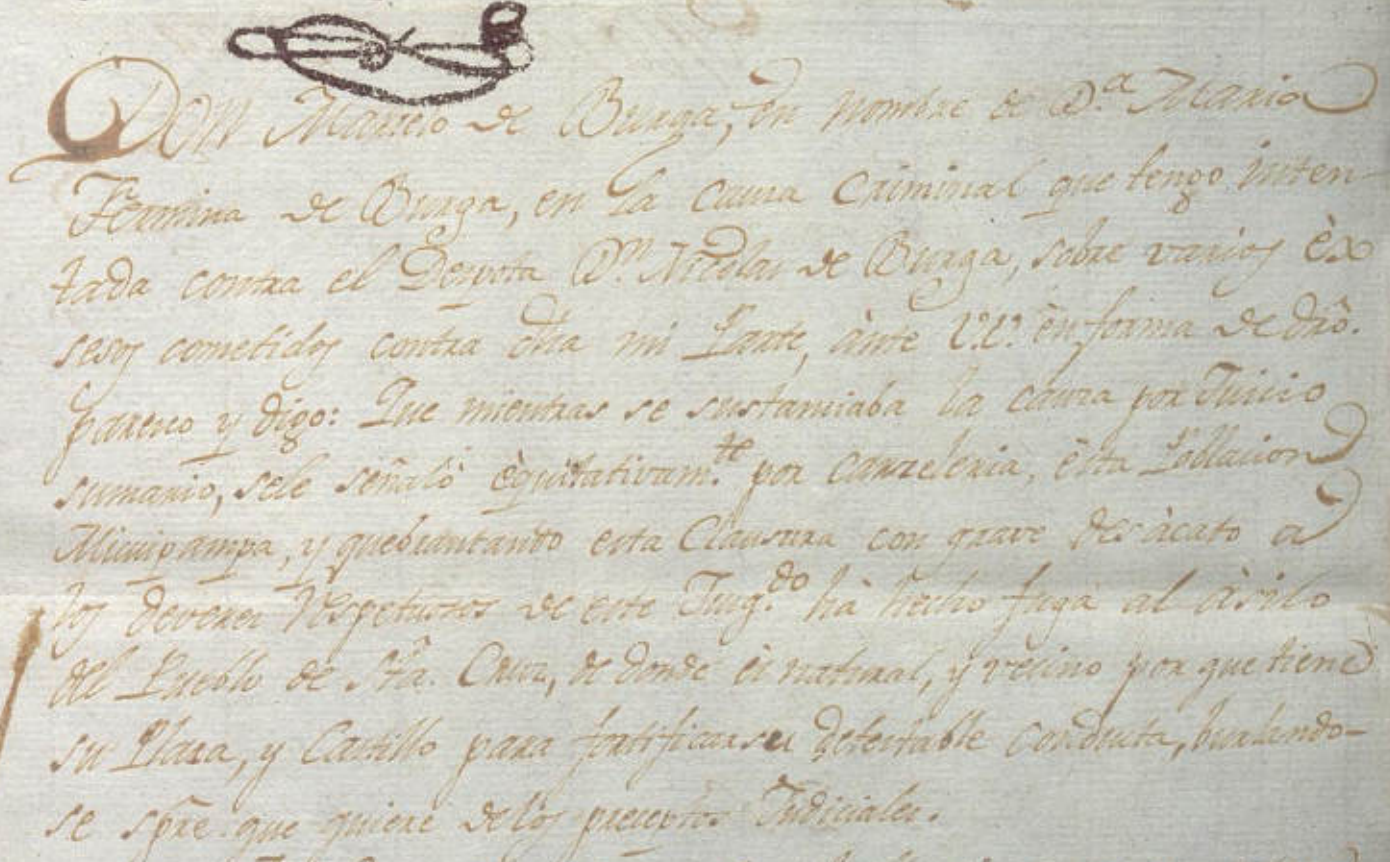 Don Marcelo de Burga, en nombre de D.ª Maria
Fermina de Burga, en la causa Criminal que tengo inten-
tada contra el Dn. Nicolas de Burga, sobre varios èx
sesos cometidos contra dha mi Parte, ànte V.V. en forma de dro.
paresco y digo: Que mientras se sustanciaba la causa por Juicio
sumario, sele señalò èquitativam.te por carzeleria, èsta Poblacion
Micuipampa, y quebrantando esta Clausura con grave desàcato a
los deveres respetuosos de este Juzg.do hà hecho fuga al àsilo
del Pueblo de Sta. Cruz, de donde ès natural, y vecino por que tiene
su Plaza, y Castillo para fortificar su detestable conducta, burlando-
se spre. que quiere delos preceptos Judiciales.